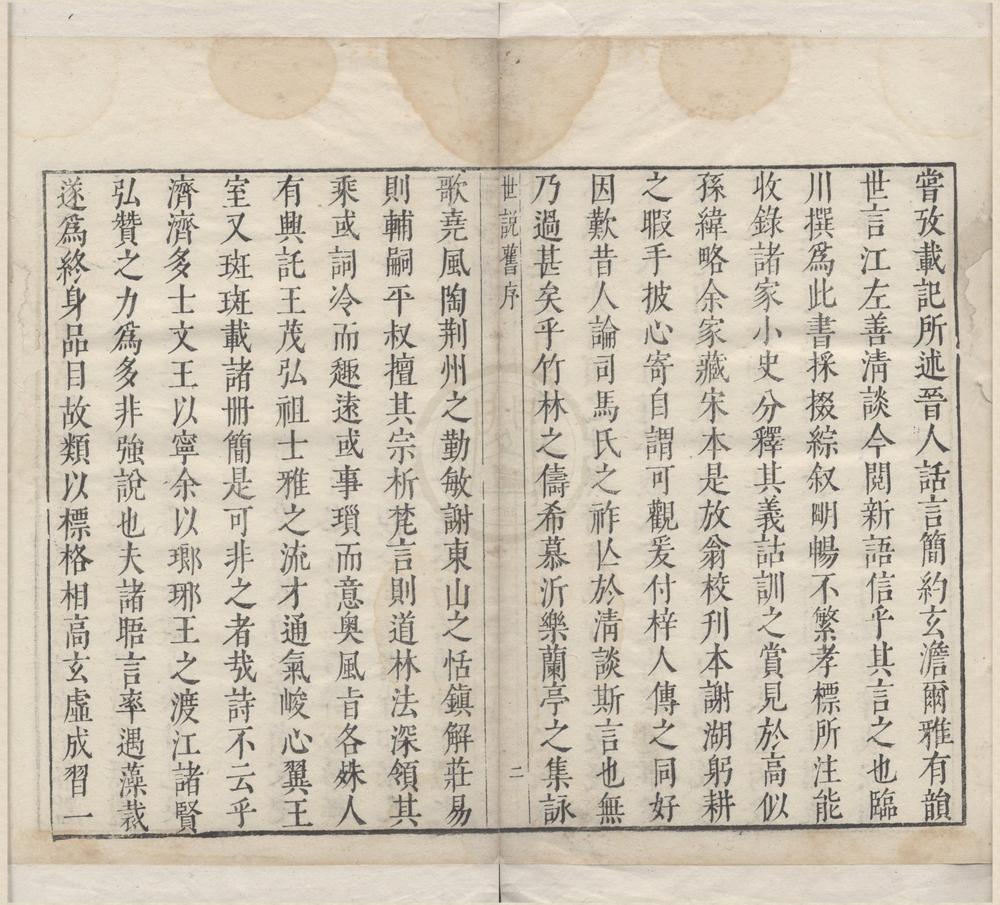 嘗攷載記所述晉人話言簡約玄澹爾雅有韻
世言江左善清談今閱新語信乎其言之也臨
川撰爲此書採掇綜叙明暢不繁孝標所注能
收錄諸家小史分釋其義詁訓之賞見於高似
孫緯略余家藏宋本是放翁校刊本謝湖躬耕
之暇手披心寄自謂可觀爰付梓人傳之同好
因歎昔人論司馬氏之祚亾於清談斯言也無
乃過甚矣乎竹林之儔希慕沂樂蘭亭之集詠
世說舊序 二
歌堯風陶荆州之勤敏謝東山之恬鎮解莊易
則輔嗣平叔擅其宗析梵言則道林法深領其
乘或詞冷而趣遠或事瑣而意奧風旨各姝人
有興託王茂弘祖士雅之流才通氣峻心翼王
室又斑斑載諸册簡是可非之者哉詩不云乎
濟濟多士文王以寧余以瑯琊王之渡江諸賢
弘贊之力爲多非強說也夫諸晤言率遇藻裁
遂爲終身品目故類以標格相高玄虛成習一